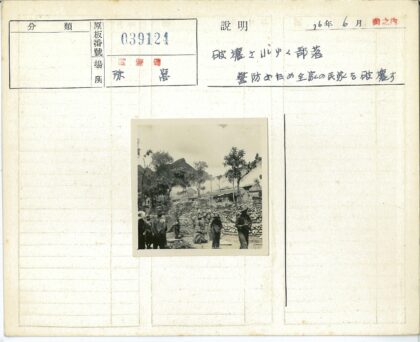 分類
原板番號
039124
場所
說明
年 6月
破壞されゆく部落
警防のため の民家を破壞す